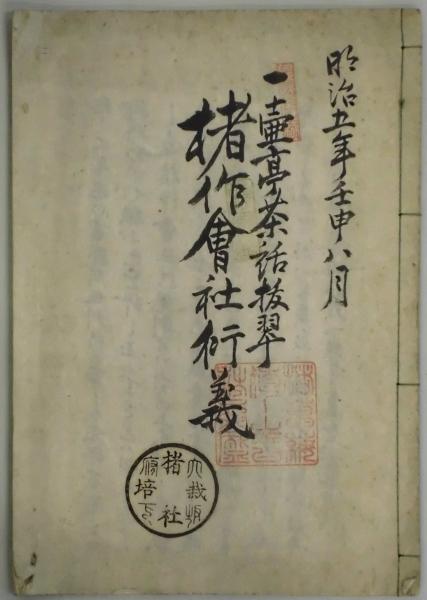 明治五年壬申八月
一壷亭茶話抜翠
楮作會社衍義
楮社